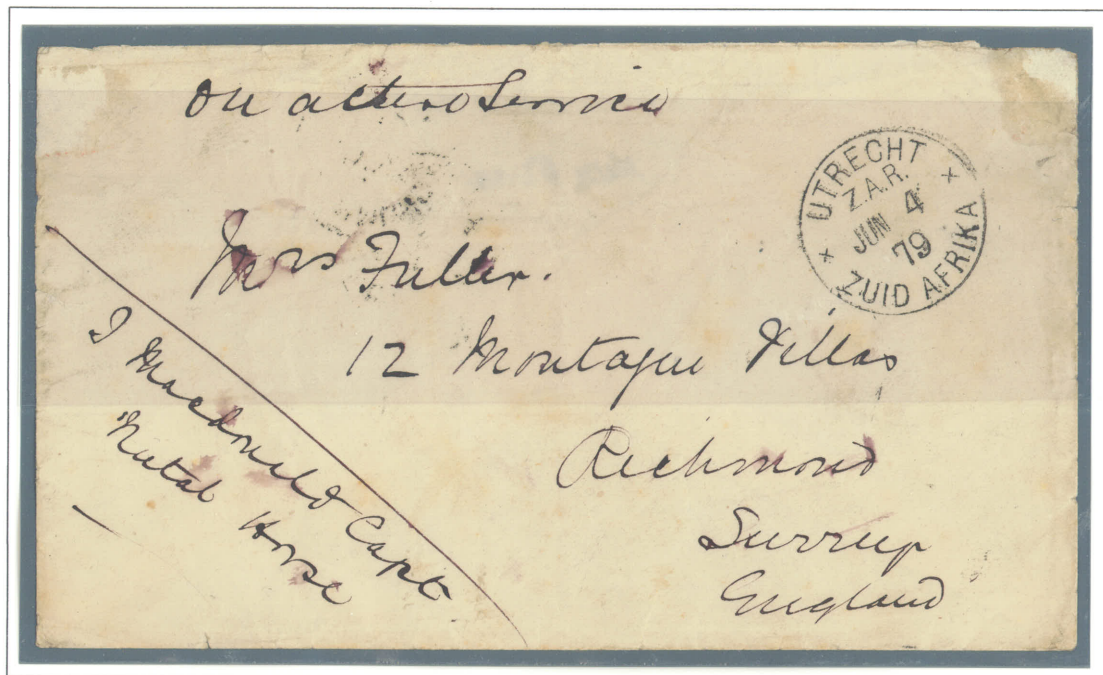 On active Service
UTRECHT
Z.A.R.
JUN 4
79
ZUID AFRIKA
Mrs Fuller.
12 Montague Villas
Richmond
Surrey
England
Macdonald Capt
Natal Horse